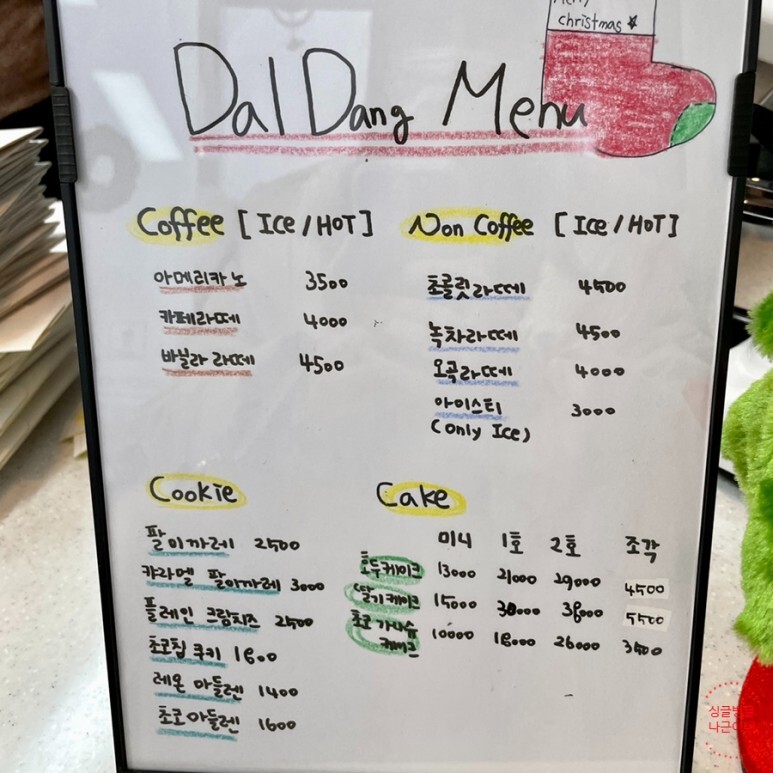 Merry
christmas
Dal Dang Menu
Coffee [Ice/HoT]
아메리카노 3500
카페라떼 4000
바닐라 라떼 4500
Non Coffee [Ice/HoT]
초콜릿라떼 4500
녹차라떼 4500
오곡라떼 4000
아이스티 3000
(only Ice)
Cookie
팔미까레 2500
카라멜 팔미까레 3000
플레인 크림치즈 2500
초코칩 쿠키 1800
레몬 마들렌 1400
초코마들렌 1600
Cake
미니 1호 2호 조각
호두케이크 13000 21000 29000 4500
딸기케이크 15000 30000 38000 5500
초코가나슈
케이크 10000 18000 26000 3500
싱글벙글